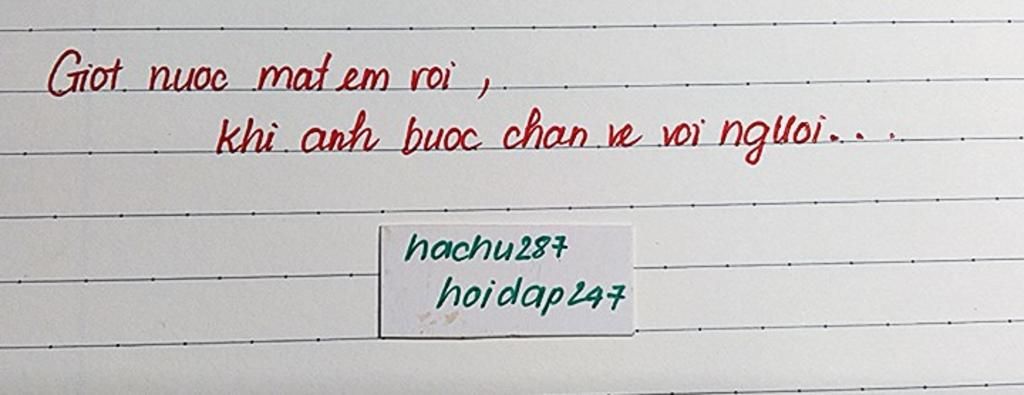 Giot nuoc mat em roi,
khi anh buoc chan ve voi nguoi...
hachu287
hoidap247